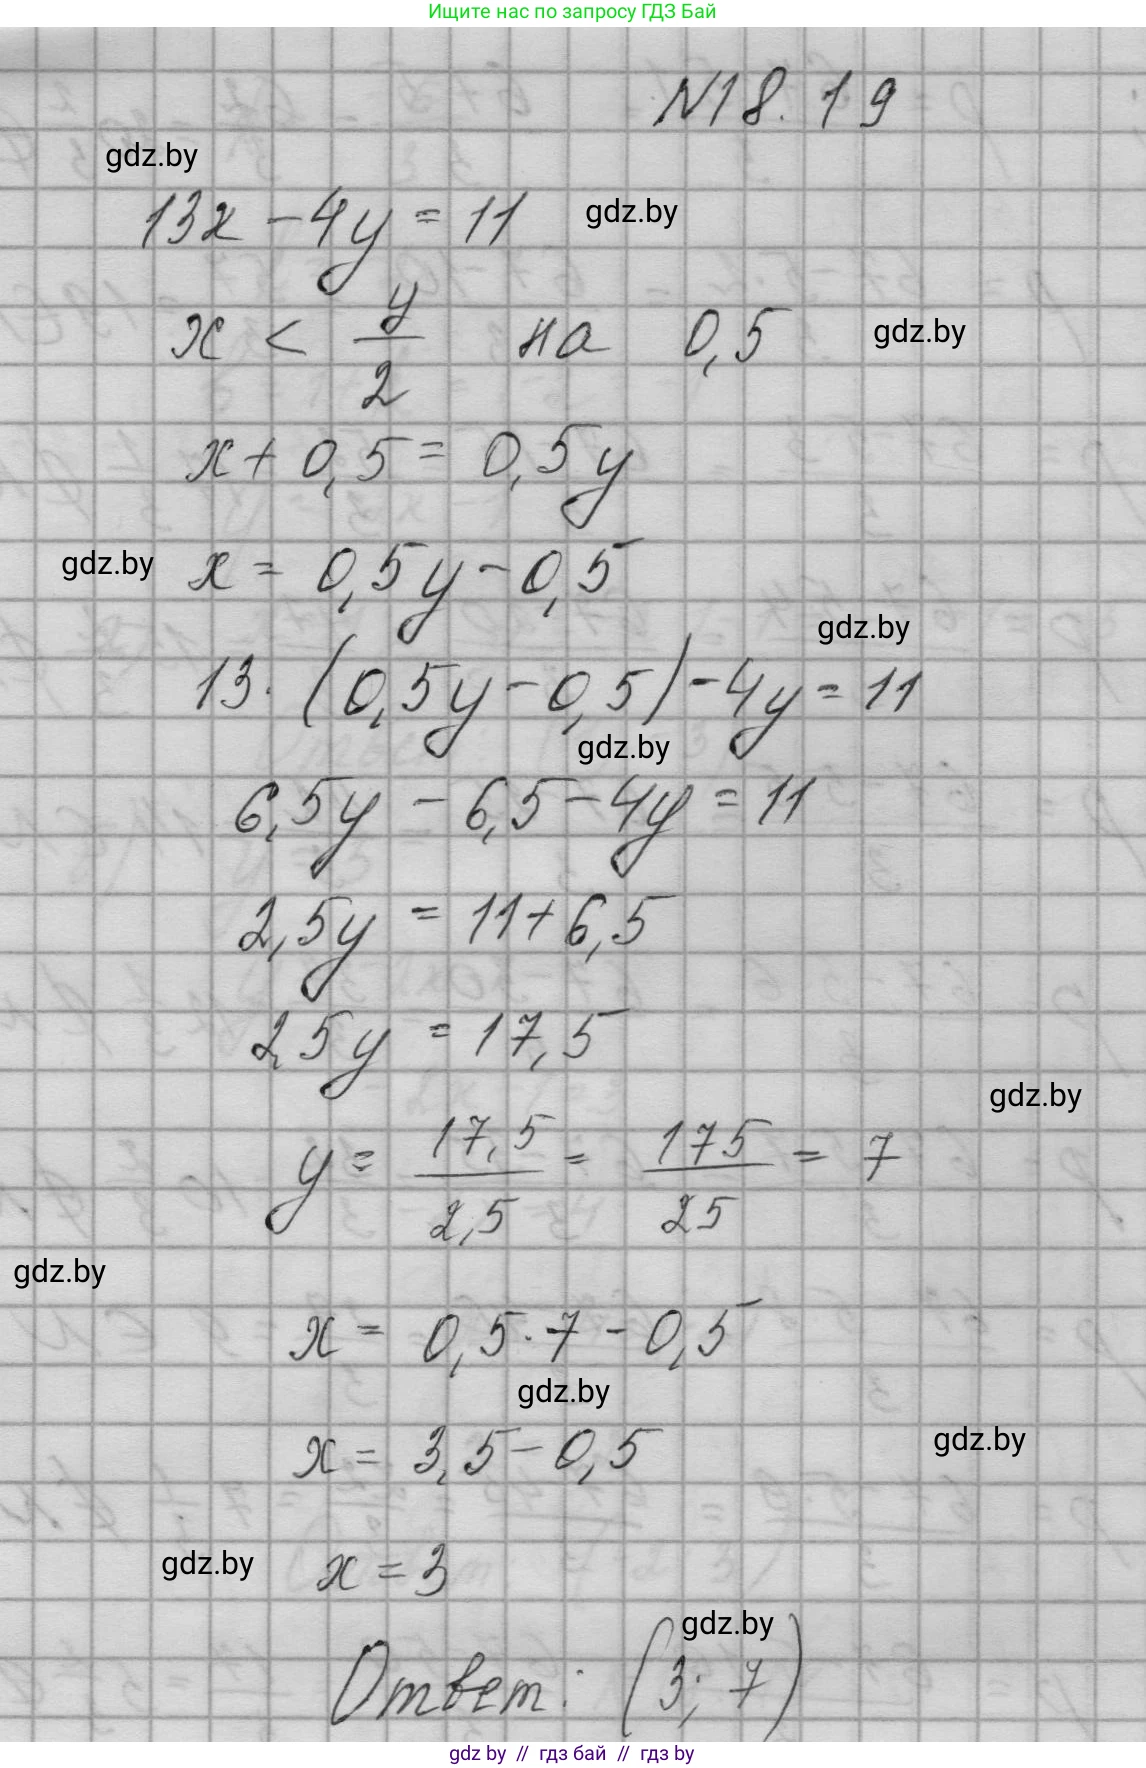 Ищите нас по запросу ГДЗ Бай
N18.19
gdz.by
13x - 4y = 11
gdz.by
x < y/2 на 0,5
gdz.by
x + 0,5 = 0,5y
gdz.by
x = 0,5y - 0,5
gdz.by
13 · (0,5y - 0,5) - 4y = 11
gdz.by
6,5y - 6,5 - 4y = 11
2,5y = 11 + 6,5
2,5y = 17,5
gdz.by
y = 17,5/2,5 = 175/25 = 7
gdz.by
x = 0,5 · 7 - 0,5
gdz.by
gdz.by
x = 3,5 - 0,5
gdz.by
x = 3
gdz.by
Ответ: (3; 7)
gdz by // гдз бай // gdz by